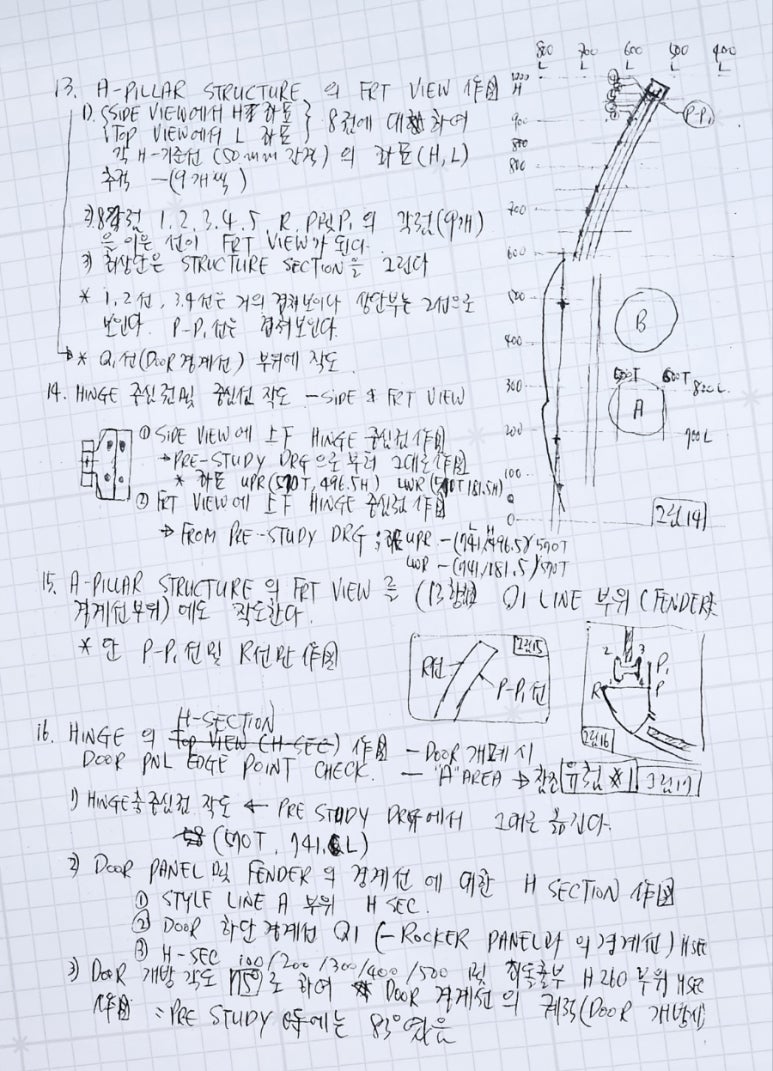 800 700 600 500 400
L L L L L
1000
H
900
800
800
700
600
500
400
300
200
100
0
P-P1
B
A
500T 600T 800L
700L
그림14
13. A-PILLAR STRUCTURE 의 FRT VIEW 作図
1). SIDE VIEW에서 H 좌표
TOP VIEW에서 L 좌표 8점에 대하여
각 H-기준선 (50mm 간격) 의 좌표(H, L)
추적 -(9개씩)
2) 1. 2. 3. 4. 5 R. P및P1 의 각점(9개)
을 이은 선이 FRT VIEW가 된다.
3) 최상단은 STRUCTURE SECTION을 그린다
* 1, 2선, 3.4선은 거의 겹쳐보이나 상단부는 2선으로
보인다. P-P1 선은 겹쳐보인다.
* Q1선(DOOR 경계선) 부위에 작도
14. HINGE 중심점및 중심선 작도 - SIDE & FRT VIEW
① SIDE VIEW에 上下 HINGE 중심점 作図
→ PRE-STUDY DRG으로부터 그대로 作図
* 좌표 UPR(570T, 496.5H) LWR(570T 181.5H)
② FRT VIEW에 上下 HINGE 중심점 作図
→ FROM PRE-STUDY DRG : UPR - (741/496.5)/570T
L H
LWR - (741/181.5)/570T
15. A-PILLAR STRUCTURE 의 FRT VIEW 를 (13항) Q1 LINE 부위 (FENDER
경계선부위)에도 작도한다.
* 단 P-P1선및 R선만 作図
R선 P-P1선 그림15
2 3 P1
R P
그림16
16. HINGE 의 H-SECTION 作図 - DOOR 개폐시
TOP VIEW (H-SEC)
DOOR PNL EDGE POINT CHECK. - "A" AREA → 참조 *1 그림17
1) HINGE 중심점 작도 ← PRE STUDY DRG에서 그대로 옮긴다.
(570T, 741. L)
2) DOOR PANEL 및 FENDER 의 경계선 에 대한 H SECTION 作図
① STYLE LINE A 부위 H SEC.
② DOOR 하단경계선 Q1 (-ROCKER PANEL과 의 경계선) H SEC
③ H-SEC 100/200/300/400/500 및 최돌출부 H260 부위 H SEC
3) DOOR 개방 각도 75° 로 하여 DOOR 경계선의 궤적(DOOR 개방시)
作図 : PRE STUDY 에는 83°였음